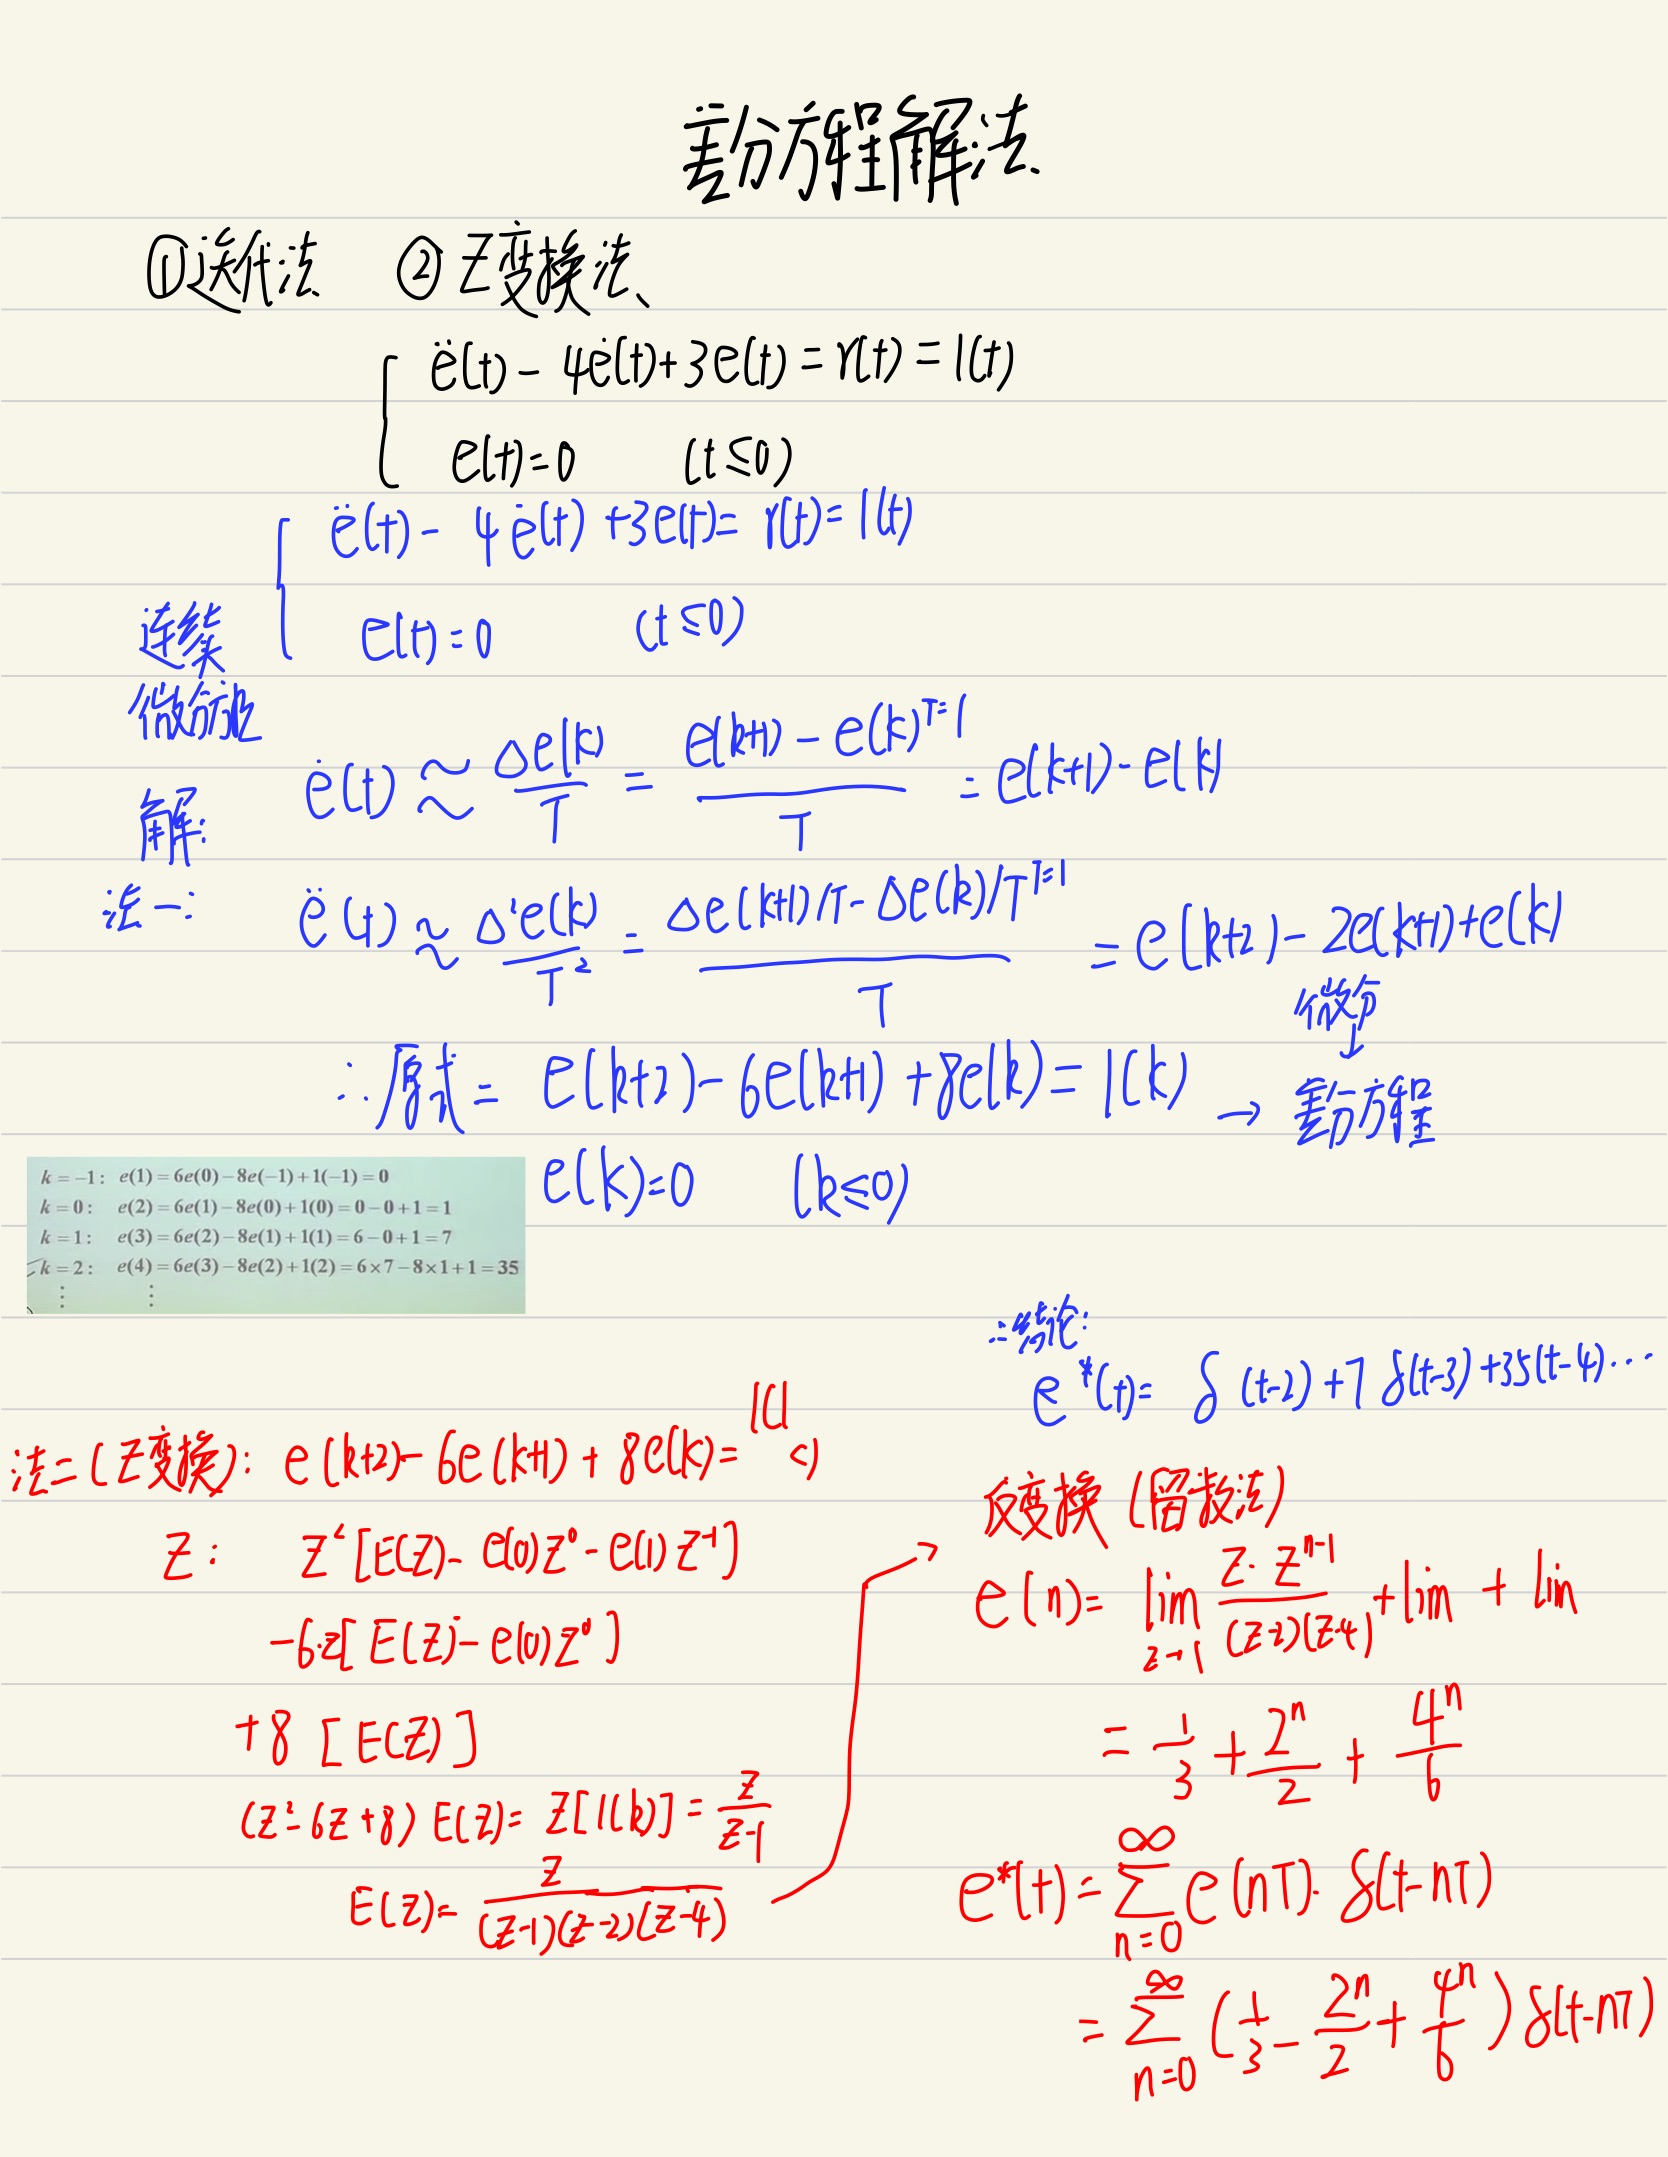 差分方程解法
①迭代法 ②Z变换法、
ë(t) - 4ė(t) + 3e(t) = r(t) = 1(t)
e(t) = 0 (t ≤ 0)
ë(t) - 4ė(t) + 3e(t) = r(t) = 1(t)
连续
e(t) = 0 (t ≤ 0)
微分
解:
ė(t) ≈ Δe(k)/T = (e(k+1) - e(k))/T T=1 = e(k+1) - e(k)
法一:
ë(t) ≈ Δ²e(k)/T² = (Δe(k+1)/T - Δe(k)/T)/T T=1 = e(k+2) - 2e(k+1) + e(k)
微分
↓
∴原式 = e(k+2) - 6e(k+1) + 8e(k) = 1(k) → 差分方程
e(k) = 0 (k ≤ 0)
k = −1: e(1) = 6e(0) − 8e(−1) + 1(−1) = 0
k = 0: e(2) = 6e(1) − 8e(0) + 1(0) = 0 − 0 + 1 = 1
k = 1: e(3) = 6e(2) − 8e(1) + 1(1) = 6 − 0 + 1 = 7
k = 2: e(4) = 6e(3) − 8e(2) + 1(2) = 6×7 − 8×1 + 1 = 35
⋮ ⋮
∴结论:
e*(t) = δ(t-2) + 7δ(t-3) + 35(t-4)...
法二(Z变换): e(k+2) - 6e(k+1) + 8e(k) = 1(
Z: Z²[E(Z) - e(0)Z⁰ - e(1)Z⁻¹]
-6·z[E(Z) - e(0)Z⁰]
+8[E(Z)]
(Z² - 6Z + 8)E(Z) = Z[1(k)] = Z/(Z-1)
E(Z) = Z/((Z-1)(Z-2)(Z-4))
反变换(留数法)
e(n) = lim z→1 Z·Z^(n-1)/((Z-2)(Z-4)) + lim + lim
= 1/3 + 2ⁿ/2 + 4ⁿ/6
e*(t) = ∑ n=0 ∞ e(nT)·δ(t-nT)
= ∑ n=0 ∞ (1/3 - 2ⁿ/2 + 4ⁿ/6)δ(t-nT)